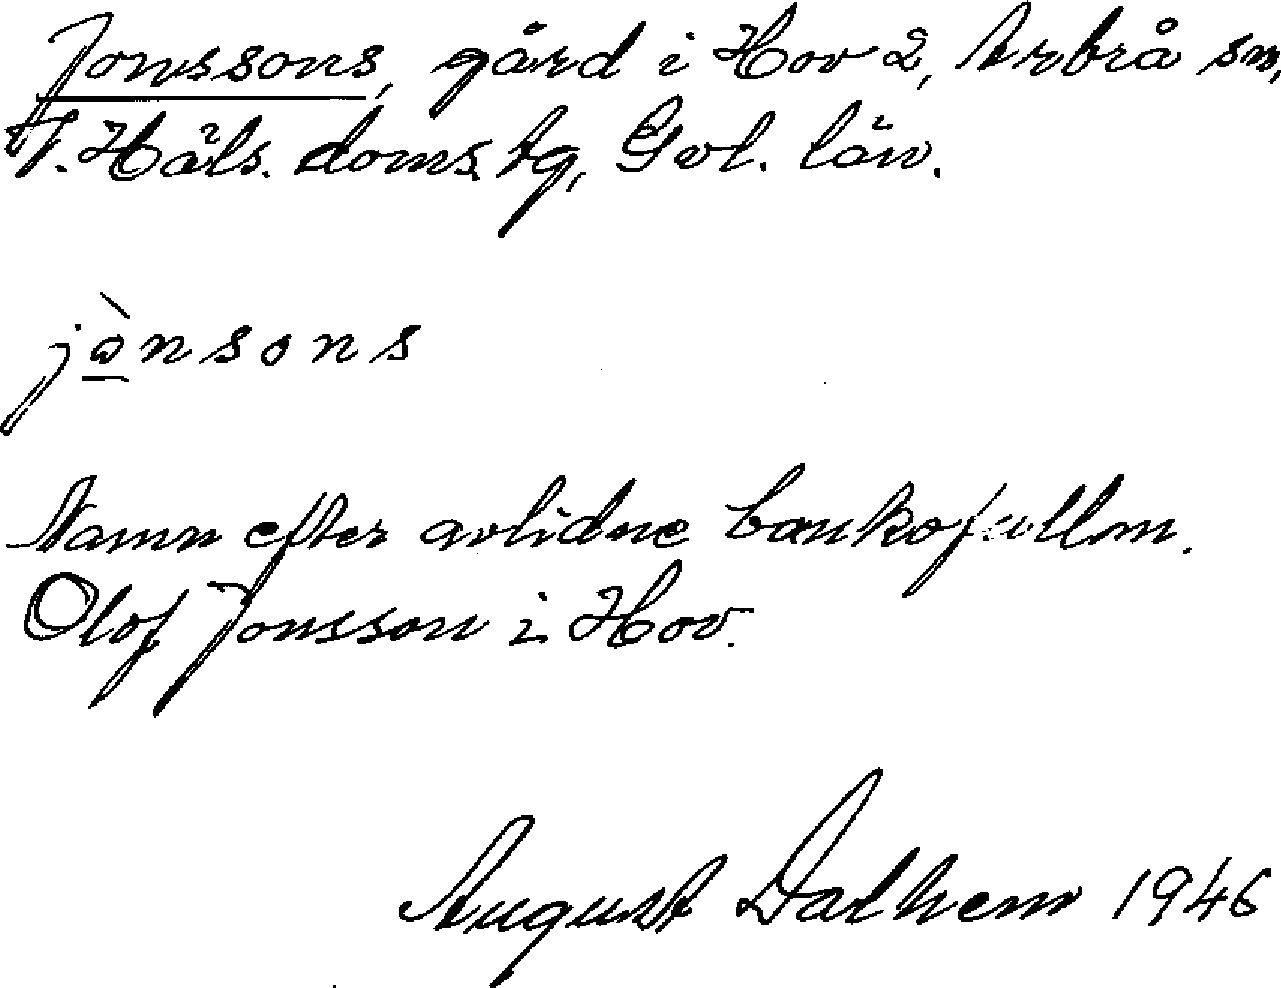 Jonssons, gård i Hov 2, Arbrå sn,
V. Häls. doms. tg, Gvl. län.
jònsons
Namn efter avlidne bankofullm.
Olof Jonsson i Hov.
August Dalhem 1946